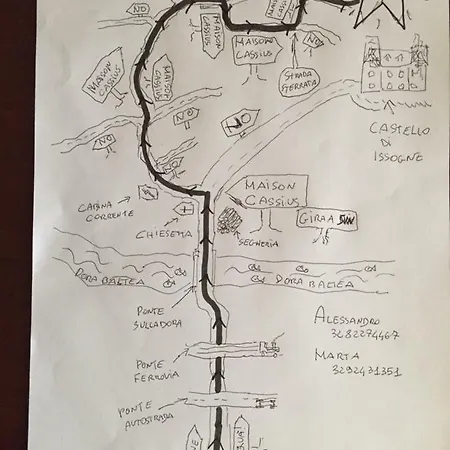 NO
MAISON
CASSIUS
MAISON
CASSIUS
MAISON
CASSIUS
NO
MAISON
CASSIUS
MAISON
CASSIUS
STRADA
STERRATA
NO
NO
NO
CASTELLO
DI
ISSOGNE
NO
CABINA
CORRENTE
MAISON
CASSIUS
CHIESETTA
SEGHERIA
DORA BALTEA
DORA BALTEA
PONTE
SULLA DORA
ALESSANDRO
3282274467
MARTA
3292431351
PONTE
FERROVIA
PONTE
AUTOSTRADA